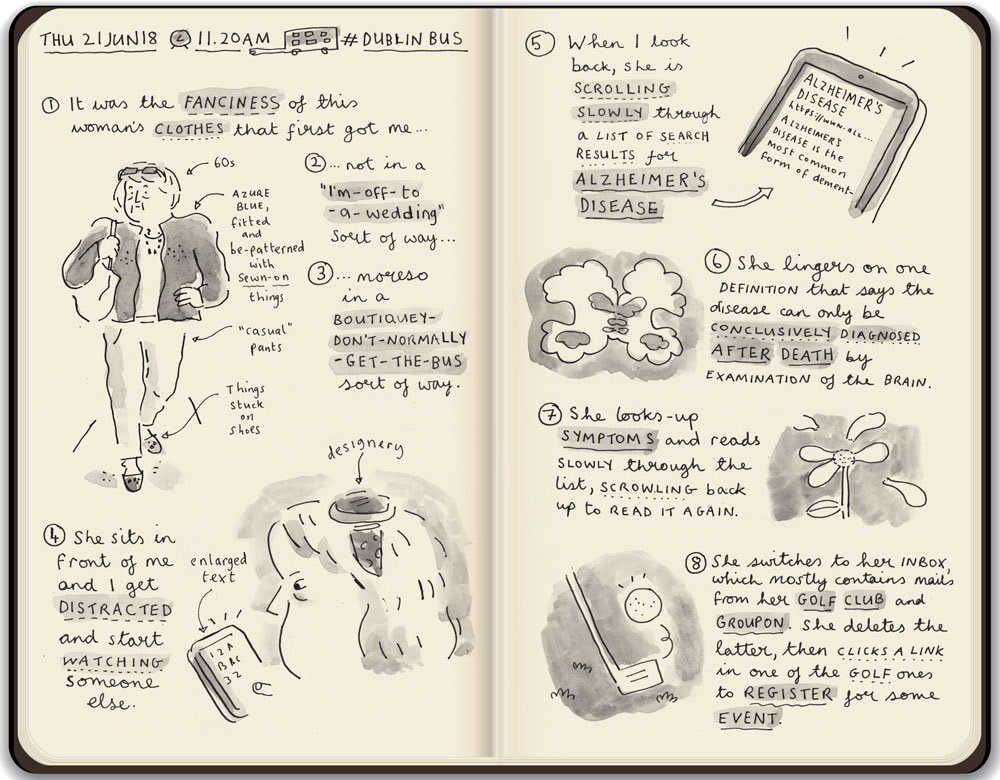 THU 21 JUN 18 @ 11.20AM # DUBLIN BUS
① It was the FANCINESS of this
woman's CLOTHES that first got me...
60s
AZURE
BLUE,
fitted
and
be-patterned
with
sewn-on
things
"casual"
pants
Things
stuck
on
shoes
② ... not in a
"I'm-off-to
-a-wedding"
sort of way...
③ ... moreso
in a
BOUTIQUEY-
DON'T-NORMALLY
-GET-THE-BUS
sort of way.
④ She sits in
front of me
and I get
DISTRACTED
and start
WATCHING
someone
else.
enlarged
text
designery
12A
BRC
32
⑤ When I look
back, she is
SCROLLING
SLOWLY through
a LIST OF SEARCH
RESULTS for
ALZHEIMER'S
DISEASE
ALZHEIMER'S
DISEASE
https://www.alz...
ALZHEIMER'S
DISEASE is the
most common
form of dement-
⑥ She lingers on one
DEFINITION that says the
disease can only be
CONCLUSIVELY DIAGNOSED
AFTER DEATH by
EXAMINATION of the BRAIN.
⑦ She looks-up
SYMPTOMS and reads
SLOWLY through the
list, SCROWLING back
up to READ IT AGAIN.
⑧ She switches to her INBOX,
which mostly contains mails
from her GOLF CLUB and
GROUPON. She deletes the
latter, then CLICKS A LINK
in one of the GOLF ones
to REGISTER for some
EVENT.